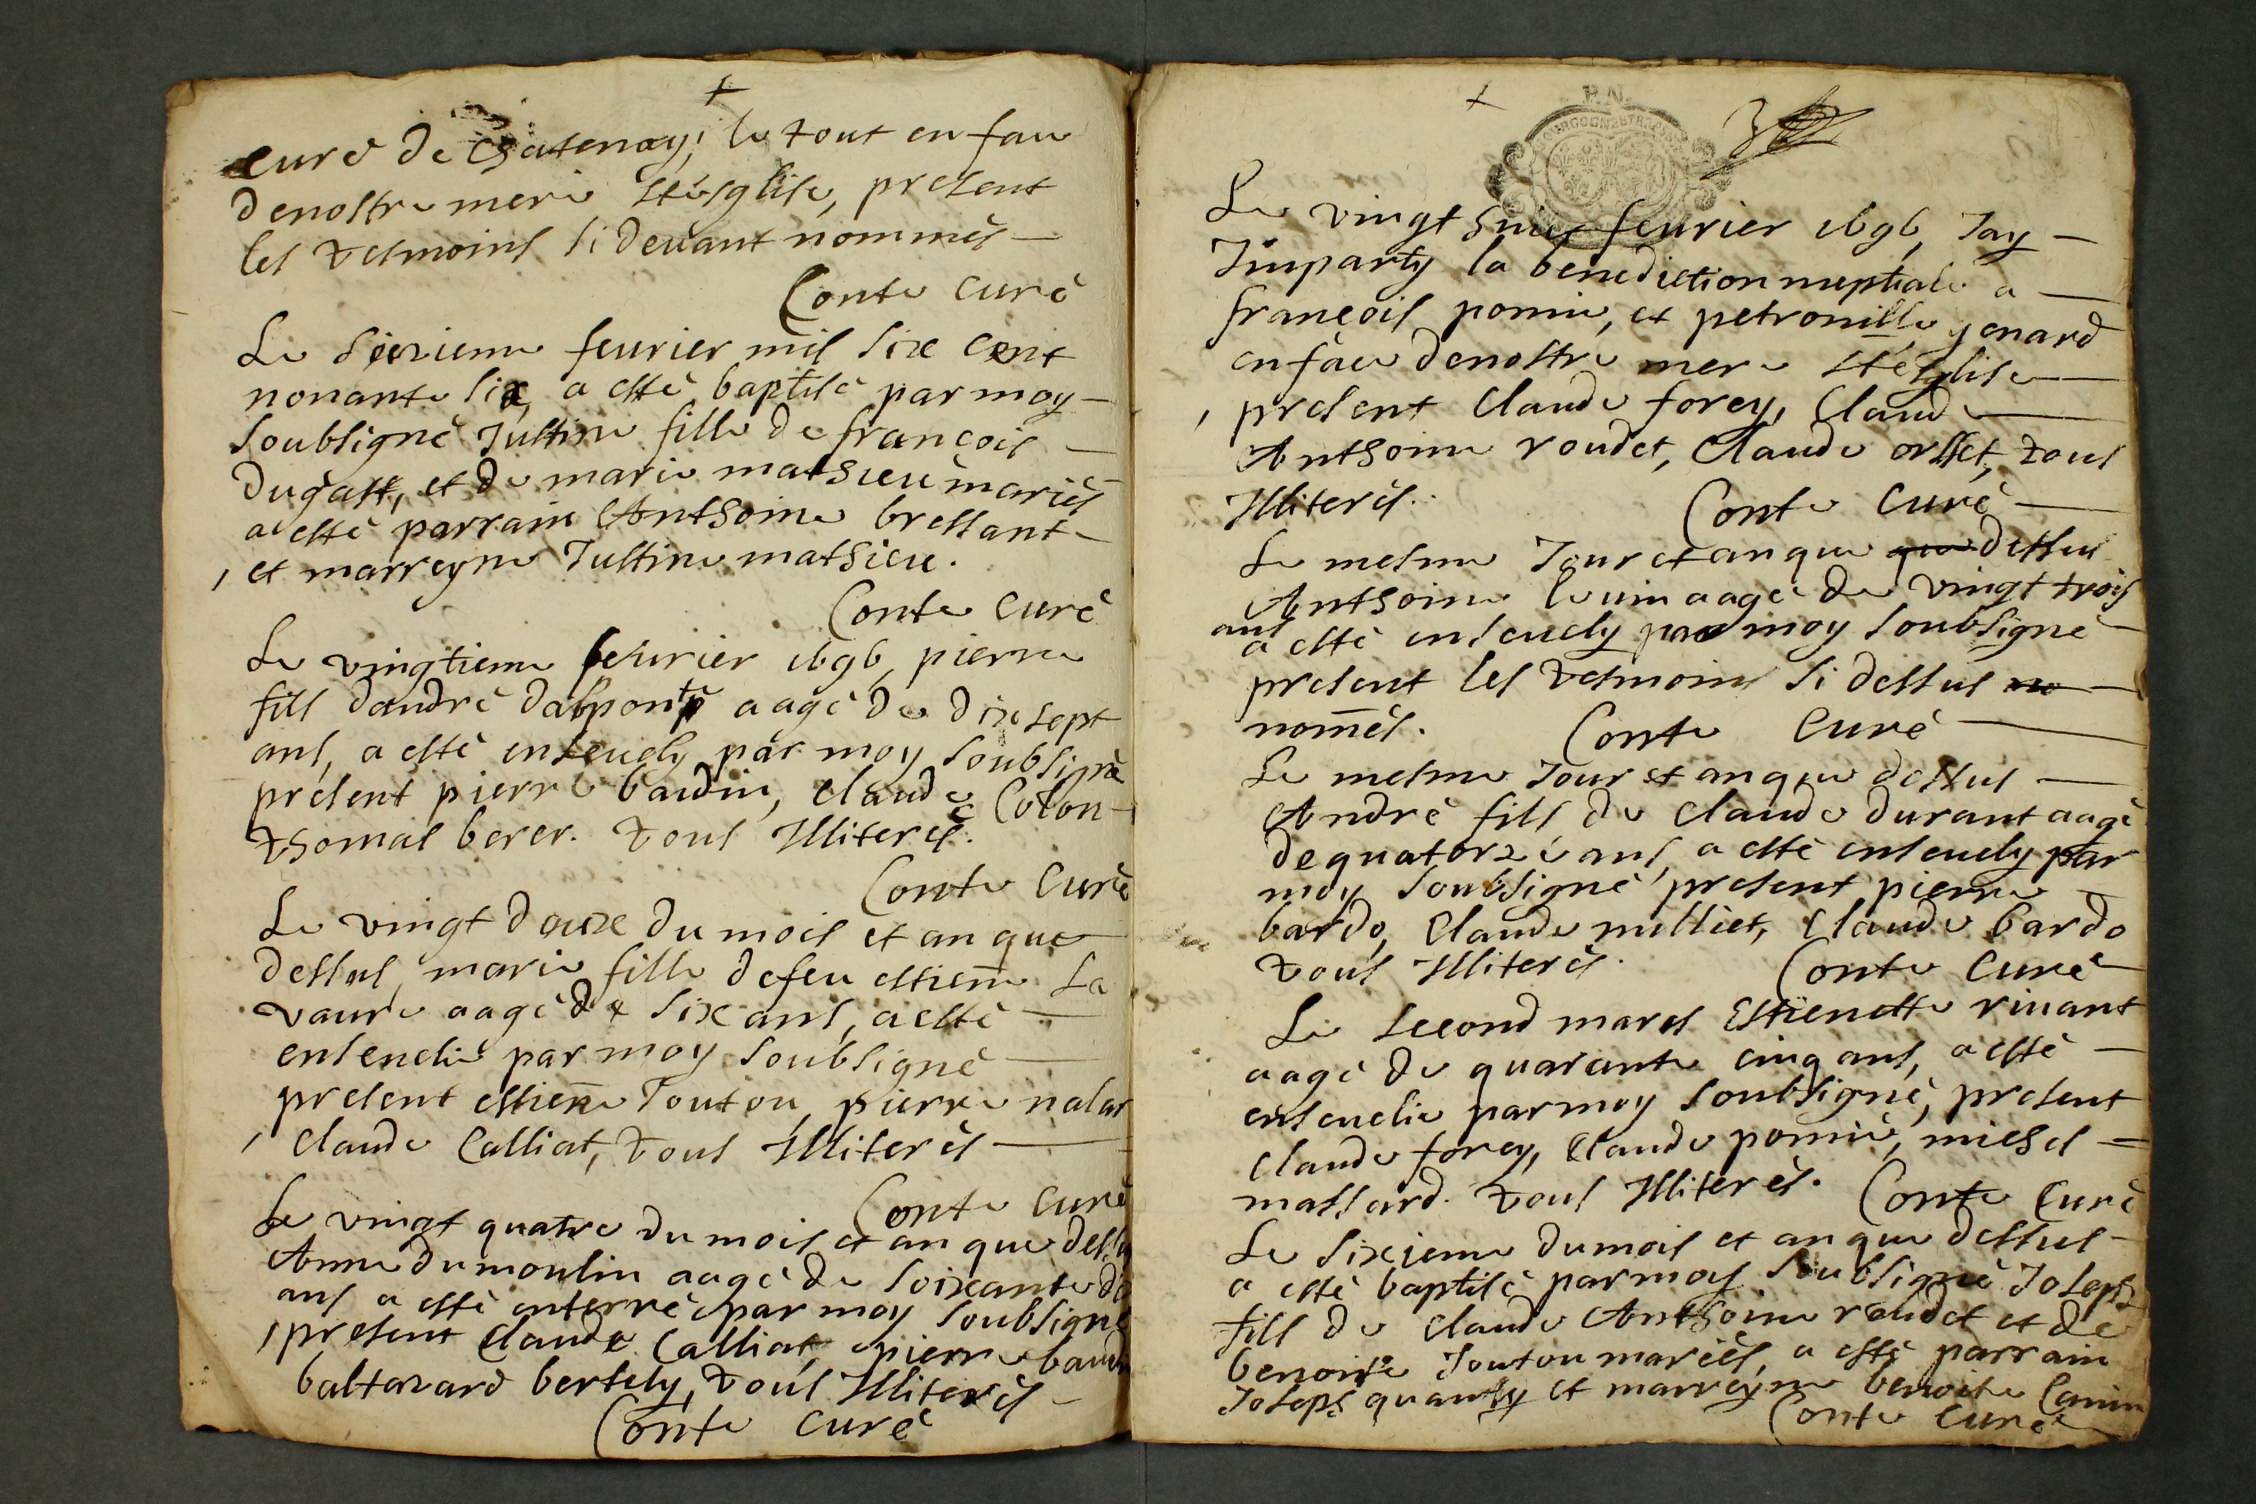 +
curé de Chatenay, le tout en face
de nostre mere ste esglise, present
les tesmoins si devant nommés
Conte curé
Le seizieme feurier mil six cent
nonante six, a esté baptisé par moy
soubsigné Justine fille de françois
dugast, et de marie mathieu mariés
a esté parrain Anthoine bressant
et marreyne Justine mathieu.
Conte curé
Le vingtieme feurier 1696, pierre
fils dandré dalponte aagé de dixsept
ans, a esté enseuely par moy soubsigné
présent pierre baudin, claude Coton
thomas berer. tous Illiterés.
Conte curé
Le vingt deuxe du mois et an que
dessus, marie fille de feu estiene La
vaure aagé de six ans, a esté
enseuelie par moy soubsigné
present estiene Toutou, pierre nalar
claude Calliat, tous Illiterés
Conte curé
Le vingt quatre du mois et an que dessu
Anne dumoulin aagé de soixante
ans a esté enterré par moy soubsigné
present claude Calliat, pierre baudi
baltazard bertely, tous Illiterés
Conte curé
+
P.N.
Le vingt huict feurier 1696, Jay
Imparty la benediction nuptiale a
françois pomie, et petronille genard
en face de nostre mere ste esglise
present claude forey, claude
Anthoine roudet, claude orsset, tous
Illiterés. Conte curé
Le mesme Jour et an que que dessus
Anthoine leuin aagé de vingt trois
ans
a esté enseuely par moy soubsigné
present les tesmoins si dessus no
només. Conte curé
Le mesme Jour et an que dessus
André fils de claude durant aagé
de quatorze ans, a esté enseuely par
moy soubsigné, present pierre
bardo, claude milliet, claude bardo
tous Illiterés. Conte curé
Le second mars Estienette riuant
aagé de quarante cinq ans, a esté
enseuelie par moy soubsigné, present
claude forey, claude pomié, michel
massard. tous Illiterés. Conte curé
Le sixieme du mois et an que dessus
a esté baptisé par moy soubsigné Joseph
fils de claude Anthoine roudet et de
benoite Toutou mariés, a esté parrain
Joseph quanty et marreyne benoite Canin
Conte curé